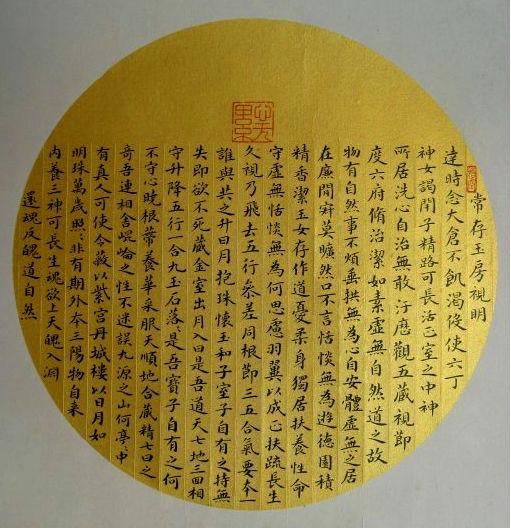 常存玉房視明
達時念大倉不飢渴役使六丁
神女謁閉子精路可長活正室之中神
所居洗心自治無敢汙歷觀五藏視節
度六府脩治潔如素虛無自然道之故
物有自然事不煩垂拱無為心自安體虛無之居
在廉間寂莫曠然口不言恬惔無為遊德園積
精香潔玉女存作道憂柔身獨居扶養性命
守虛無恬惔無為何思慮羽翼以成正扶疏長生
久視乃飛去五行參差同根節三五合氣要本一
誰與共之升日月抱珠懷玉和子室子自有之持無
失即欲不死藏金室出月入日是吾道天七地三回相
守升降五行一合九玉石落〻是吾寶子自有之何
不守心曉根蒂養華采服天順地合藏精七日之
奇吾連相舍崐崘之性不迷誤九源之山何亭〻中
有真人可使令蔽以紫宮丹城樓以日月如
明珠萬歲照〻非有期外本三陽物自來
内養三神可長生魂欲上天魄入淵
還魂反魄道自然